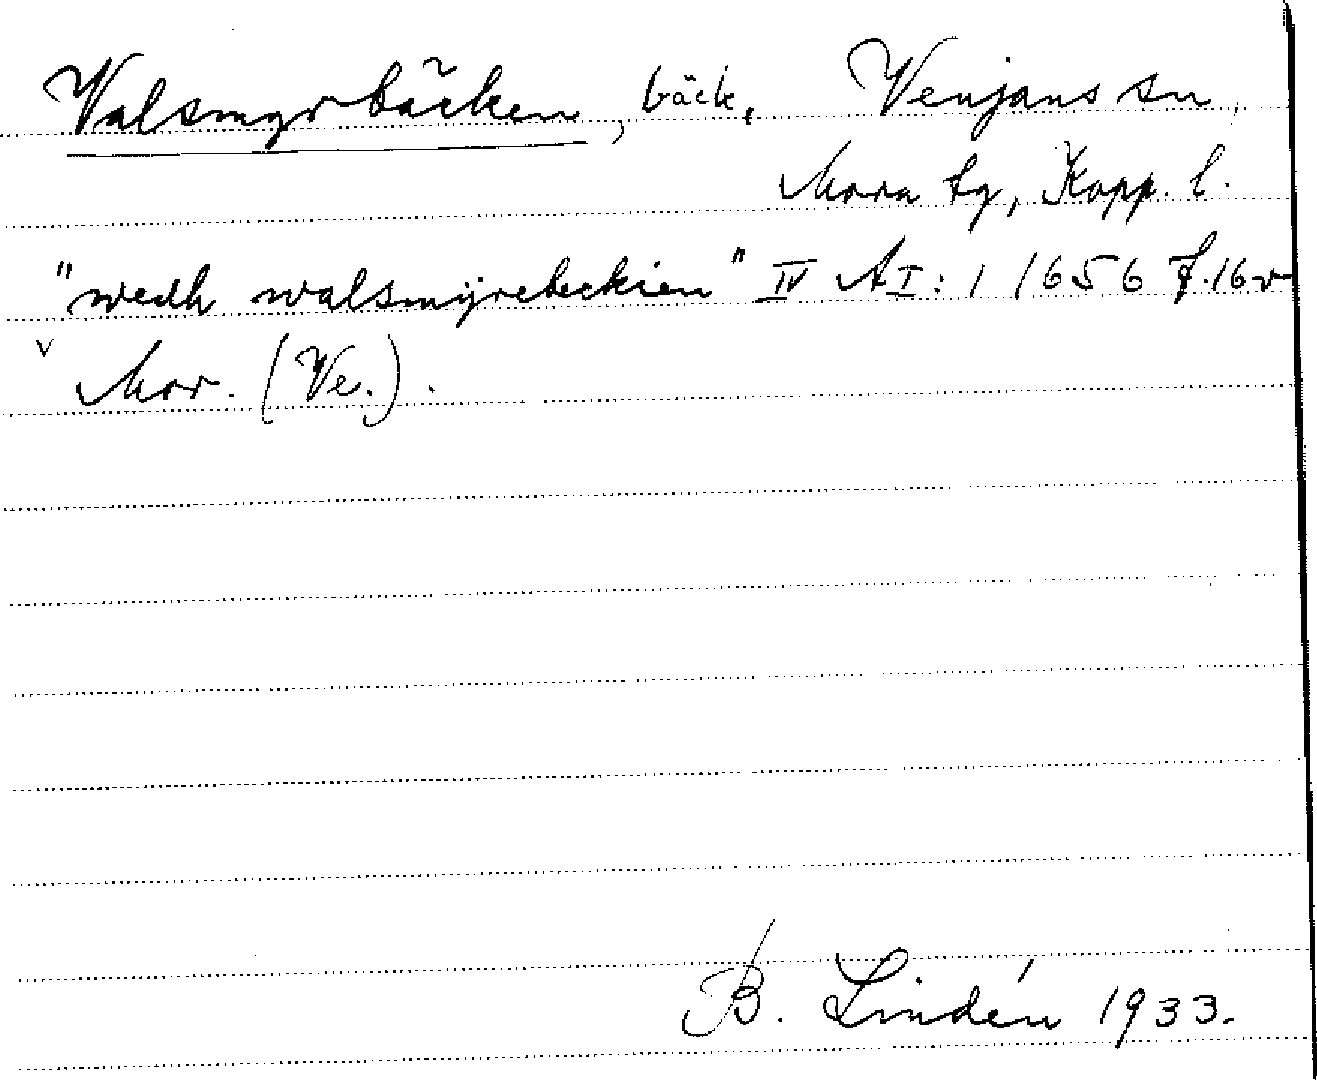 Valsmyrbäcken, bäck, Venjans sn,
Mora tg, Kopp. l.
"wedh walsmÿrebeckien" IV AI:1 1656 f.16v
v Mor. (Ve.).
B. Lindén 1933.